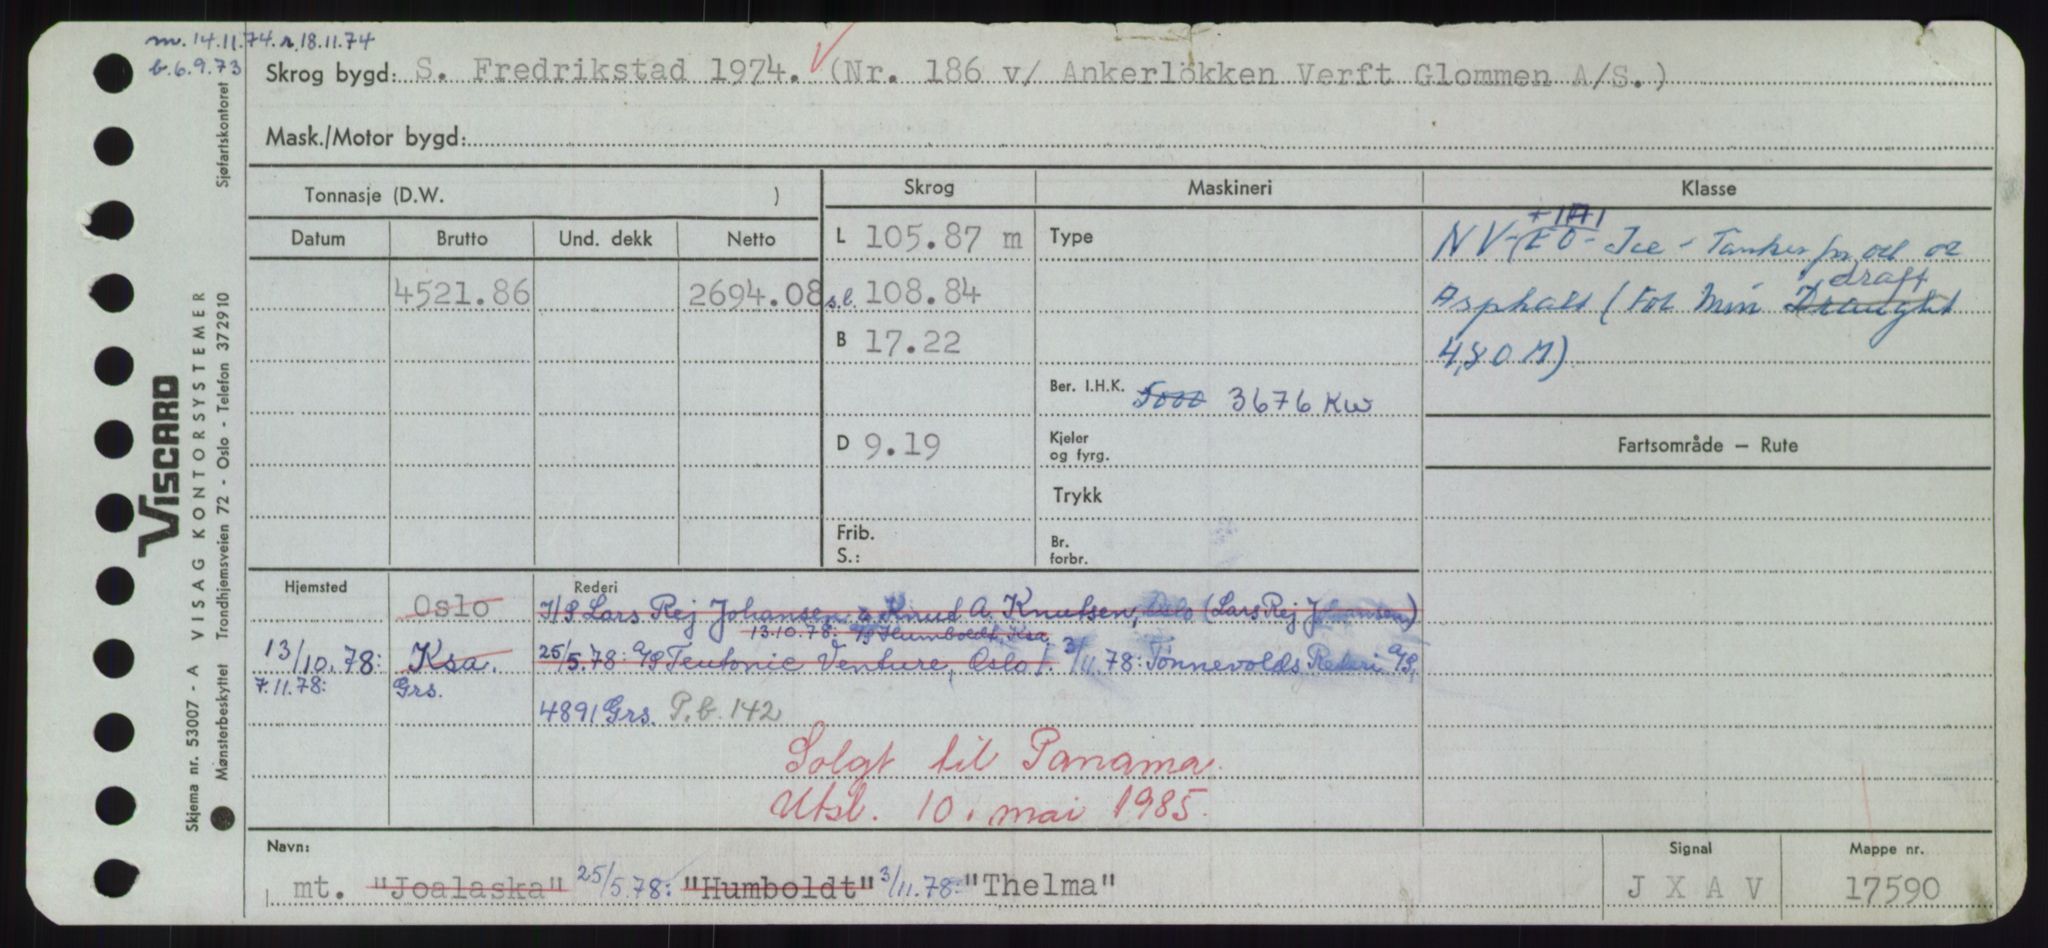 m. 14.11.74. r. 18.11.74
b. 6.9.73
Skrog bygd: S. Fredrikstad 1974. (Nr. 186 v/ Ankerlökken Verft Glommen A/S.)
Mask./Motor bygd:
Tonnasje (D.W. )
Skrog
Maskineri
Klasse
Datum
Brutto
Und. dekk
Netto
L 105.87 m
Type
+1A1
NV-EO-Ice-Tanker for
4521.86
2694.08
s.l. 108.84
draft
Asphalt (For Min Draught
B 17.22
4,80 M)
Ber. I.H.K. 5000 3676 KW
D 9.19
Kjeler og fyrg.
Fartsområde — Rute
Trykk
Frib. S.:
Br. forbr.
Hjemsted
Rederi
Oslo
I/S Lars Rej Johansen & Knud A. Knutsen, Oslo (Lars Rej Johansen)
13.10.78: Humboldt, Ksa
13/10.78: Ksa.
25/5.78: A/S Teutonic Venture, Oslo/. 3/11.78: Tønnevolds Rederi A/S,
7.11.78: Grs.
4891 Grs. P.b. 142
Solgt til Panama.
Utsl. 10. mai 1985.
Navn:
Signal
Mappe nr.
mt. "Joalaska" 25/5.78: "Humboldt" 3/11.78: "Thelma"
J X A V
17590
VISCARD
Skjema nr. 53007 - A VISAG KONTORSYSTEMER
Mønsterbeskyttet Trondhjemsveien 72 - Oslo - Telefon 372910
Sjøfartskontoret